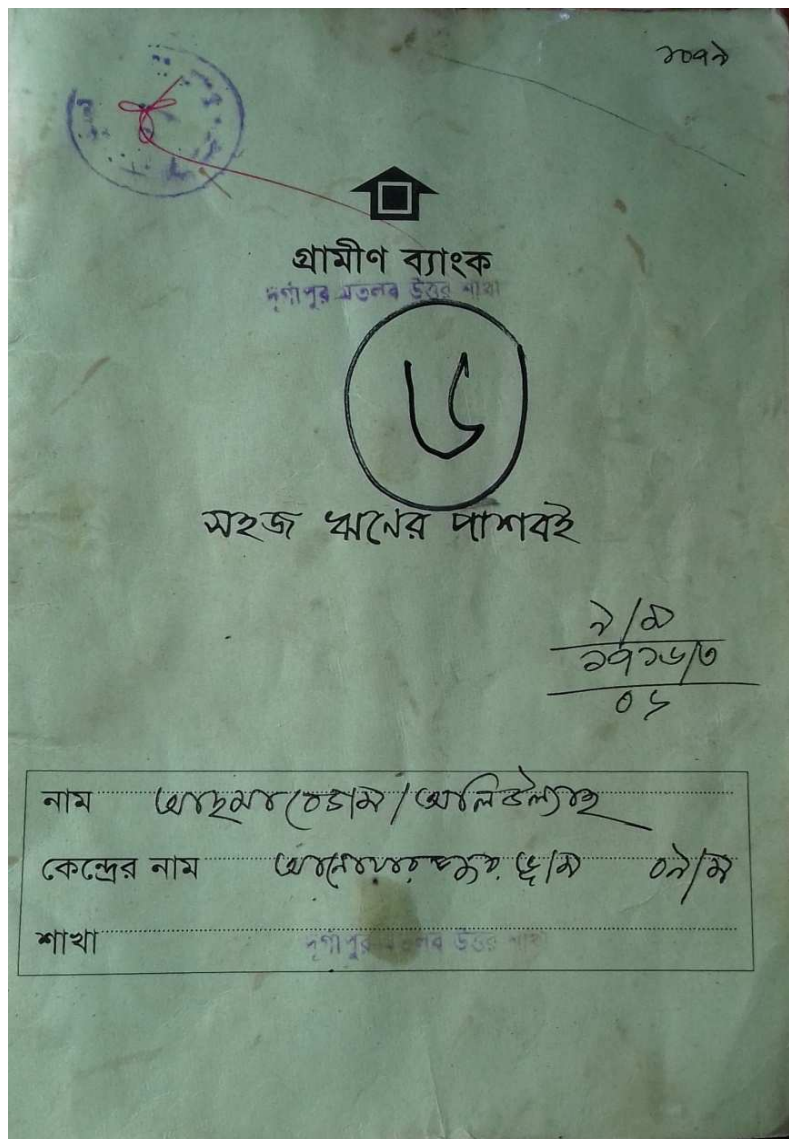 ১০৭৯
গ্রামীণ ব্যাংক
দূর্গাপুর মতলব উত্তর শাখা
৬
সহজ ঋনের পাশবই
৯/ম
১৭১৬/৩
০৮
নাম আছমা বেগম / অলিউল্যাহ
কেন্দ্রের নাম ০৯/ম
শাখা দূর্গাপুর মতলব উত্তর শাখা